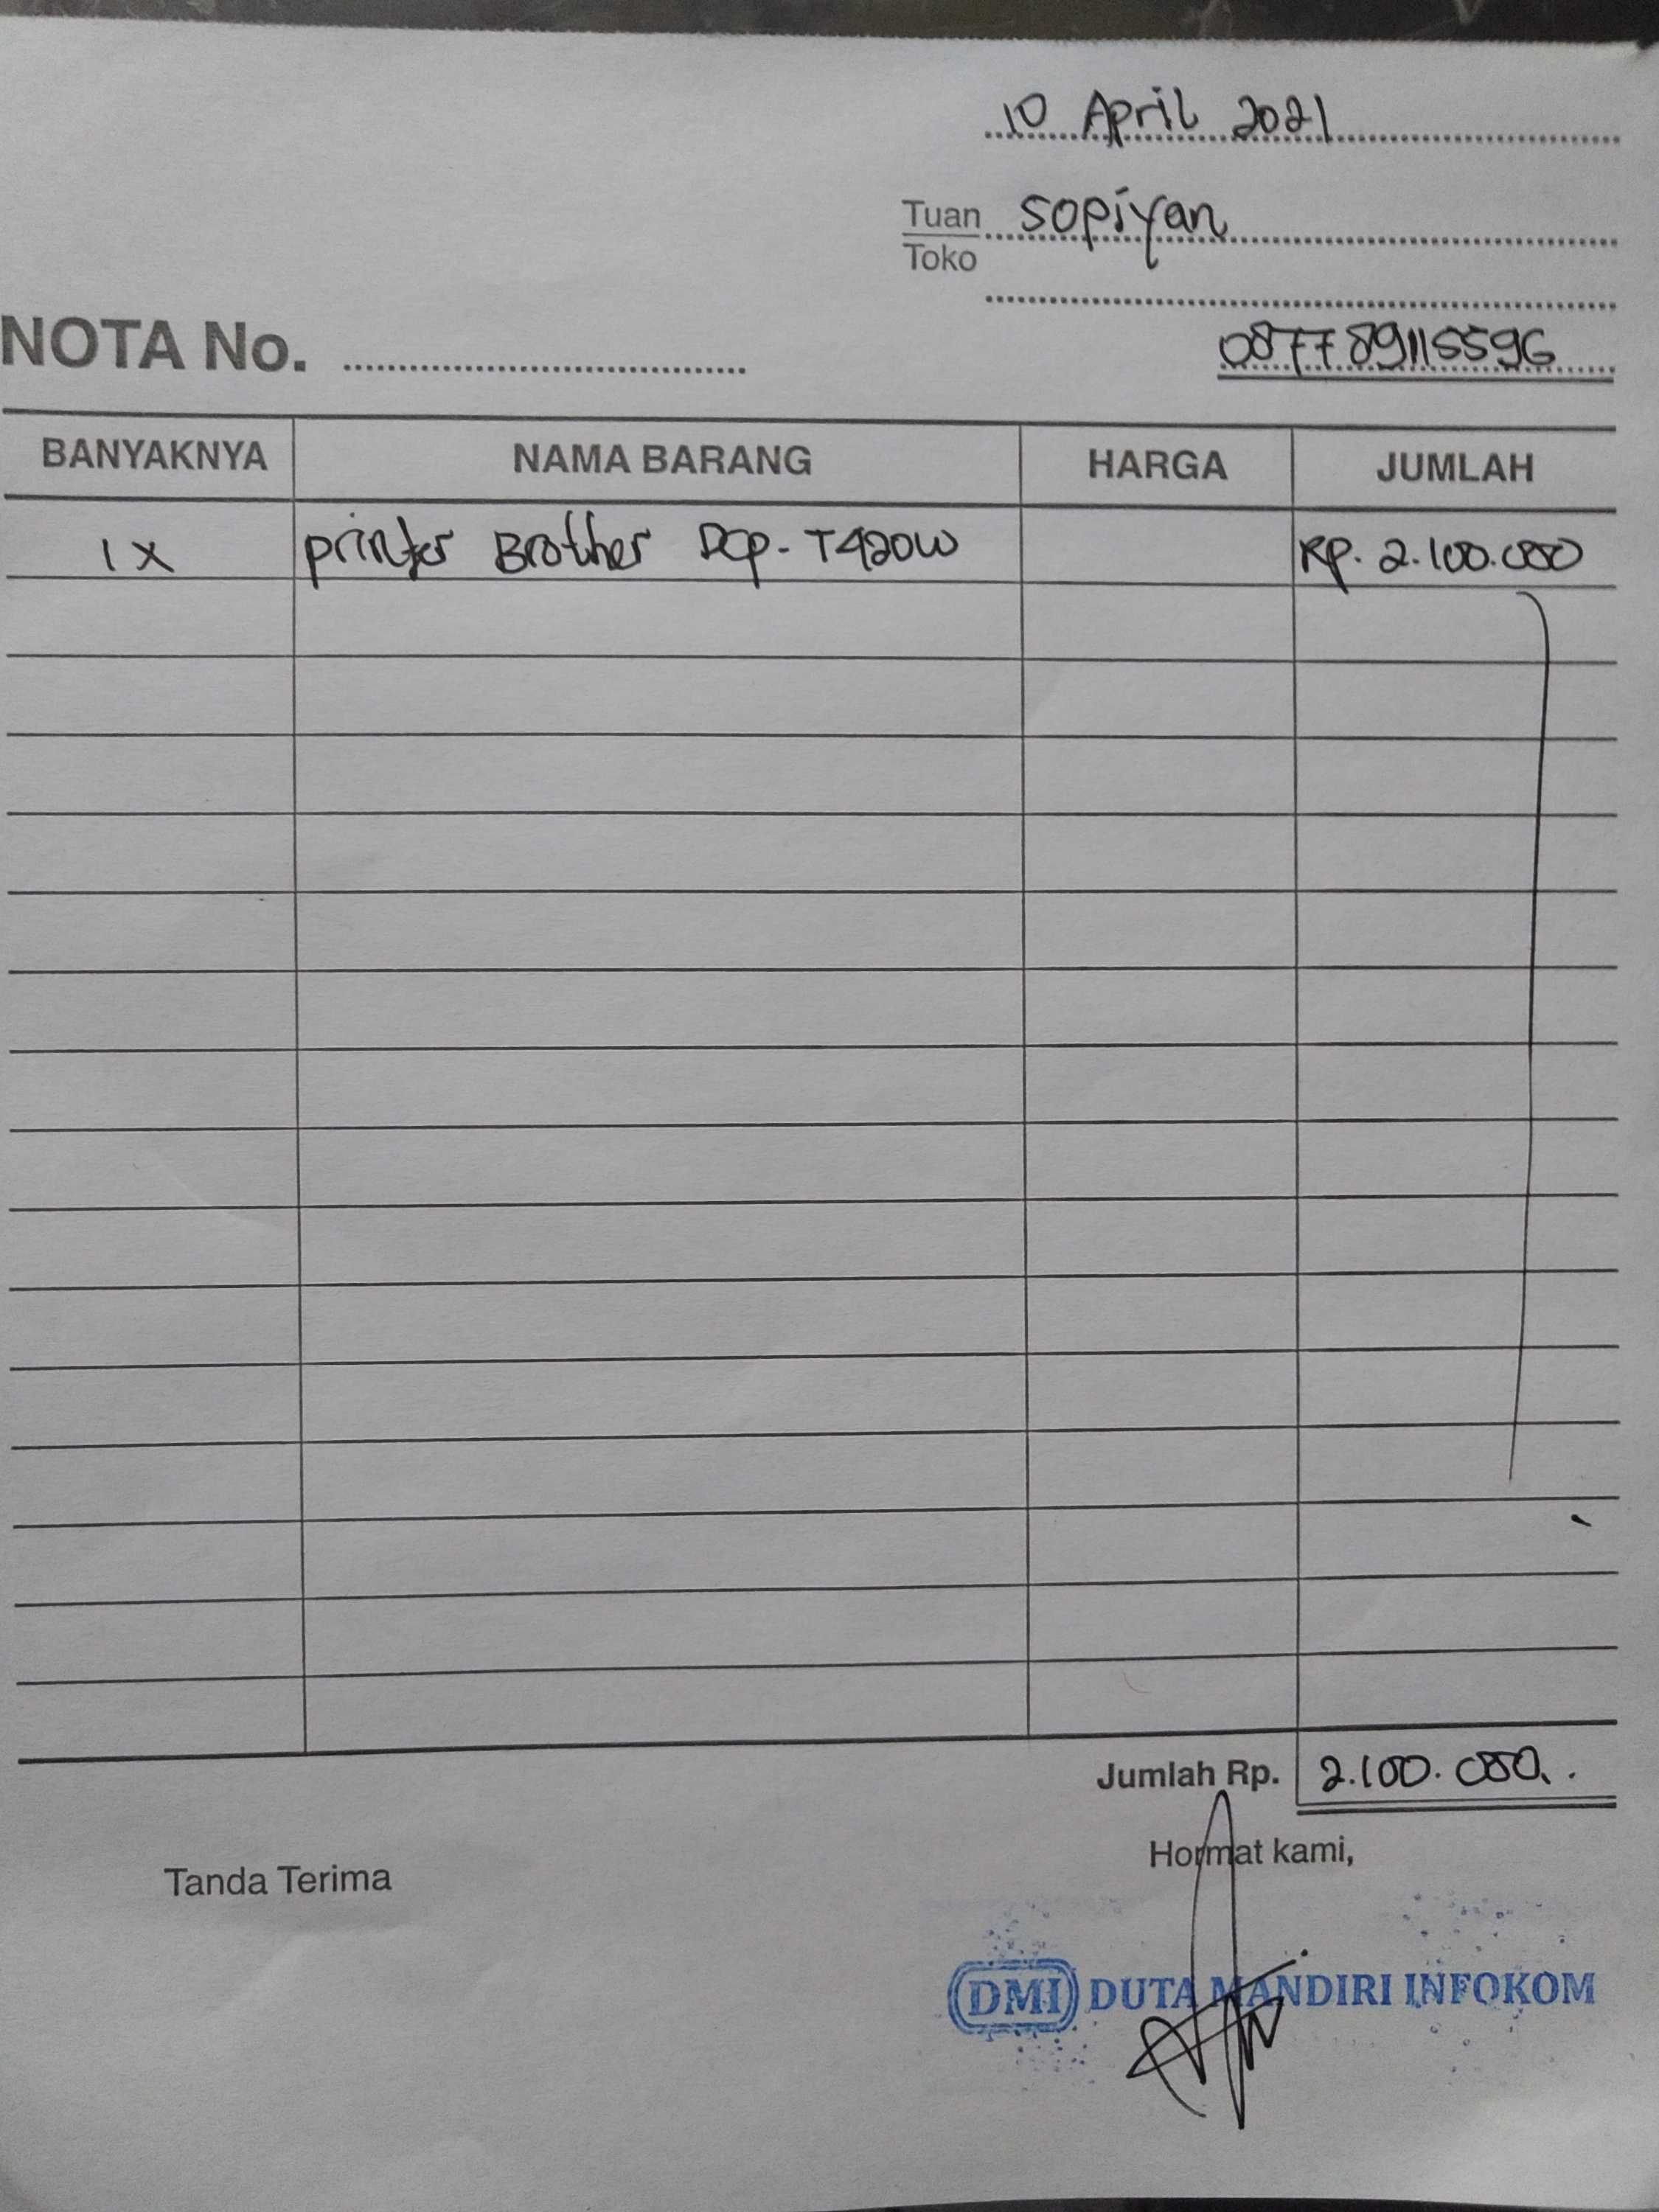 10 April 2021
Tuan sopiyan
Toko
NOTA No. 087789115596
BANYAKNYA NAMA BARANG HARGA JUMLAH
1 X printer Brother Dcp-T420W Rp. 2.100.000
Jumlah Rp. 2.100.000..
Tanda Terima Hormat kami,
DMI DUTA MANDIRI INFOKOM